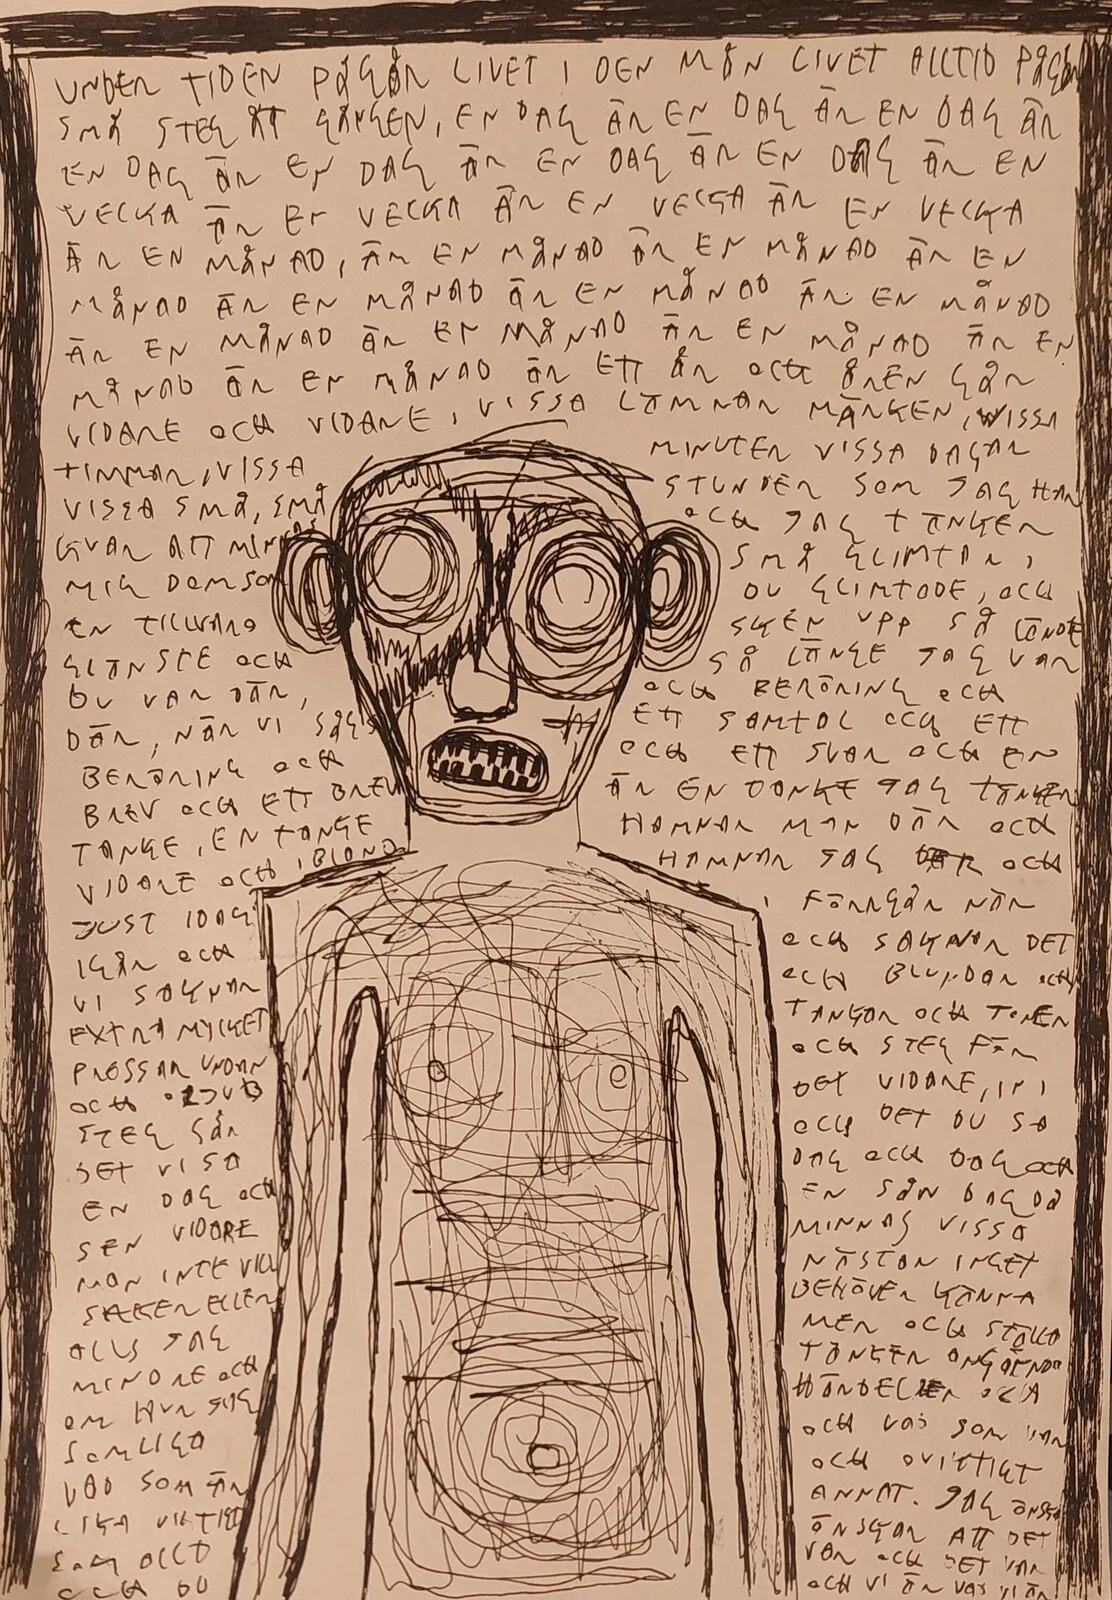 UNDER TIDEN PÅGÅR LIVET I DEN MÅN LIVET ALLTID PÅGÅR
SMÅ STEG ÅT GÅNGEN, EN DAG ÄR EN DAG ÄR EN DAG ÄR
EN DAG ÄR EN DAG ÄR EN DAG ÄR EN DAG ÄR EN
VECKA ÄR EN VECKA ÄR EN VECKA ÄR EN VECKA
ÄR EN MÅNAD, ÄR EN MÅNAD ÄR EN MÅNAD ÄR EN
MÅNAD ÄR EN MÅNAD ÄR EN MÅNAD ÄR EN MÅNAD
ÄR EN MÅNAD ÄR EN MÅNAD ÄR EN MÅNAD ÄR EN
MÅNAD ÄR EN MÅNAD ÄR ETT ÅR OCH ÅREN GÅR
VIDARE OCH VIDARE, VISSA LÄMNAR MÄRKEN, WISSA
TIMMAR, VISSA MINUTER VISSA DAGAR
VISSA SMÅ, SMÅ STUNDER SOM JAG HAR
KVAR ATT MINNAS OCH JAG TÄNKER
MIG DEM SOM SMÅ GLIMTAR,
EN TILLVARO DU GLIMTADE, OCH
GLÄNSTE OCH SKEN UPP SÅ LÄNGE
DU VAR DÄR, SÅ LÄNGE JAG VAR
DÄR, NÄR VI SÅGS OCH BERÖRING OCH
BERÖRING OCH ETT SAMTAL OCH ETT
BREV OCH ETT BREV OCH ETT SVAR OCH EN
TANKE, EN TANKE ÄR EN TANKE JAG TÄNKER
VIDARE OCH IBLAND HAMNAR MAN DÄR OCH
JUST IDAG HAMNAR JAG OCH
IGÅR OCH FÖRRGÅR NÄR
VI SAKNAR OCH SAKNAR DET
EXTRA MYCKET OCH BLUNDAR OCH
PRESSAR UNDAN TANGOR OCH TÅREN
OCH OCH STEG FÖR
STEG GÅR DET VIDARE, IN I
DET VI SA OCH DET DU SA
EN DAG OCH DAG OCH DAG OCH
SEN VIDARE EN SÅN DAG DÅ
MAN INTE VILL MINNAS VISSA
SAKER ELLER NÄSTAN INGET
ALLS JAG BEHÖVER KÄNNA
MINDRE OCH MER OCH STÄLLD
OM HUR JAG TÄNKER ANGÅENDE
SAMLIGA HÄNDELSER OCH
VAD SOM ÄR OCH VAD SOM VAR
LIKA VIKTIGT OCH OVIKTIGT
SOM ALLT ANNAT. JAG ÖNSKAR
OCH DU ÖNSKAR ATT DET
VAR OCH DET VAR
OCH VI ÄR VAD VI ÄR